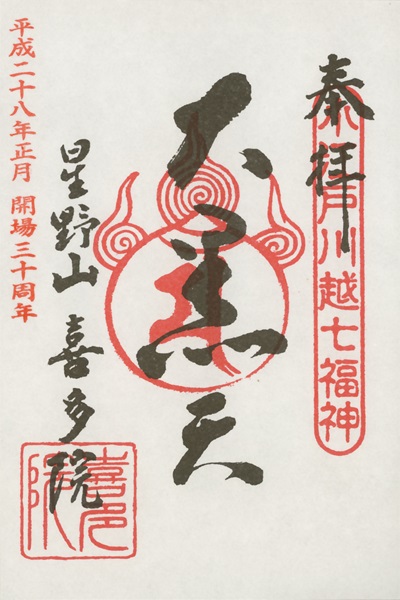 奉拝
小江戸川越七福神
大黒天
星野山 喜多院
喜多院
平成二十八年正月 開場三十周年